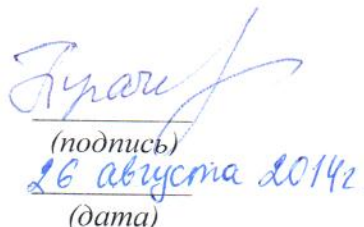 (подпись)
26 августа 2014г
(дата)